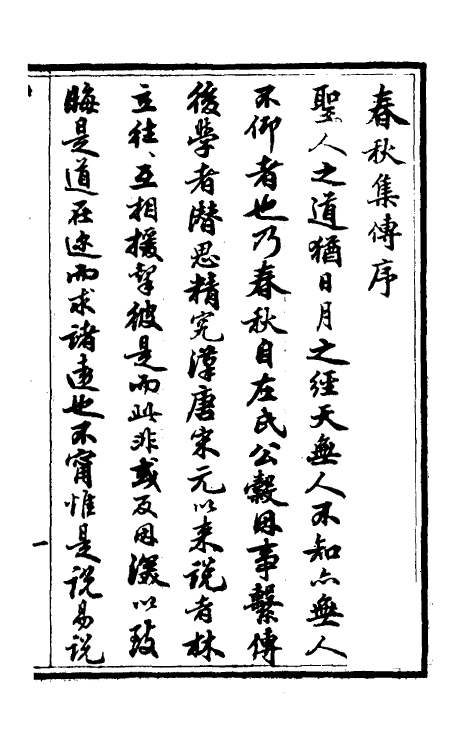 春秋集傳序
聖人之道猶日月之經天無人不知亦無人
不仰者也乃春秋自左氏公穀因事繫傳
後學者潛思精究漢唐宋元以來說者林
立往〻互相援挐彼是而此非或反因漢以致
晦是道在迩而求諸遠也不甯惟是說易說
一